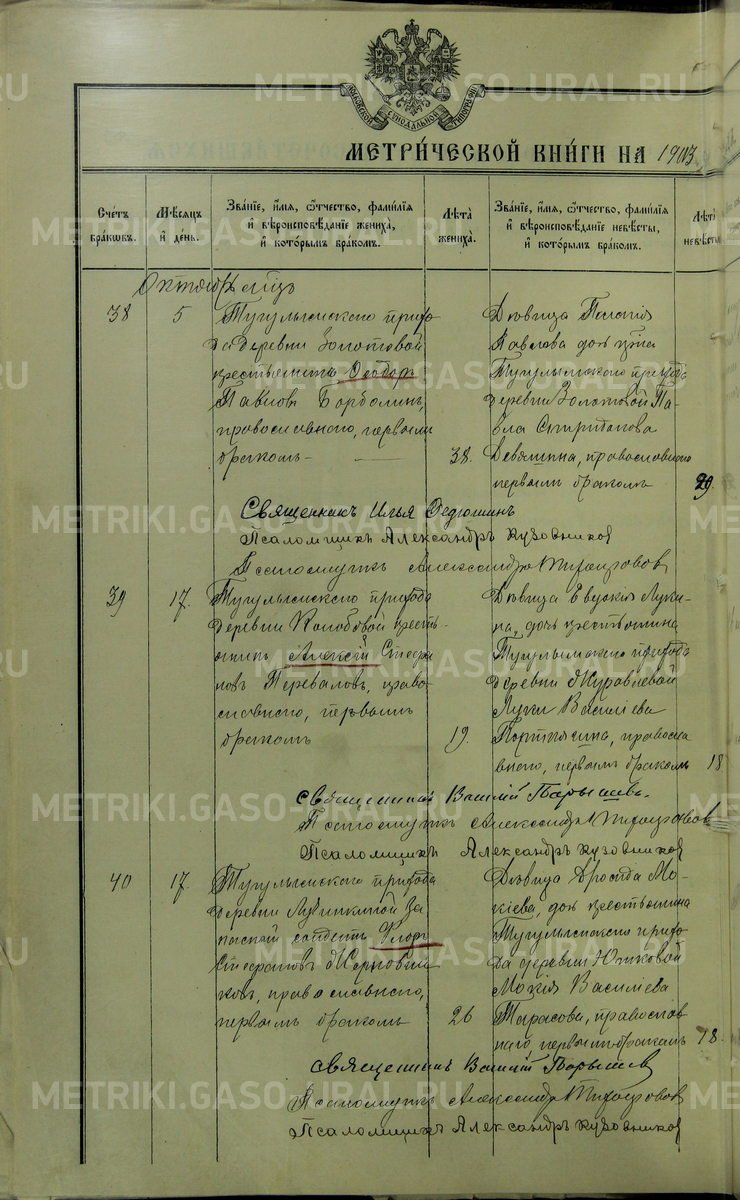 МЕТРИ́ЧЕСКОЙ КНИ́ГИ НА 1903
Счетъ бракωвъ.
Мѣсяцъ и҆ де́нь.
Зва́нїе, и҆́мя, ѻ҆́тчество, фами́лїя
и҆ вѣроисповѣ́данїе жениха̀,
и҆ кото́рымъ бра́комъ.
Лѣта̀ жениха̀.
Зва́нїе, и҆́мя, ѻ҆́тчество, фами́лїя
и҆ вѣроисповѣ́данїе невѣ́сты,
и҆ кото́рымъ бра́комъ.
Лѣта̀ невѣ́сты
Октябрь мѣсяцъ
38
5
Тугулымскаго прихо
да деревни Золотовой
крестьянинъ Ѳеодоръ
Павловъ Борболинъ,
православнаго, первымъ
бракомъ
38.
Дѣвица Пелагія
Павлова дочь кр-на
Тугулымскаго прихода
деревни Золотовой Па-
вла Спиридонова
Девяшина, православнаго
первымъ бракомъ
29.
Священникъ Илья Ѳедюшинъ
Псаломщикъ Александръ Кузовников
Псаломщикъ Александръ
39
17.
Тугулымскаго прихода
деревни Колобовой кресть-
янинъ Алексій Стефа
новъ Переваловъ, право-
славнаго, первымъ
бракомъ
19.
Дѣвица Евдокія Луки-
на, дочь крестьянина
Тугулымскаго прихода
деревни Журавлевой
Луки Василіева
Портнягина, правосла
внаго, первымъ бракомъ
18
священникъ Василій Парышевъ.
Псаломщикъ Александръ
Псаломщикъ Александръ Кузовников
40
17.
Тугулымскаго прихода
деревни Лучинкиной за
пасной солдатъ Флоръ
Стефановъ Черновши
ковъ, православнаго,
первымъ бракомъ
26
Дѣвица Ароида Мо-
кіева, дочь крестьянина
Тугулымскаго прихо
да деревни Юшковой
Мокія Василіева
Тарасова, православ
наго, первымъ бракомъ
18.
священникъ Василій Парышев
Псаломщикъ Александръ
Псаломщикъ Александръ Кузовников
METRIKI.GASO-URAL.RU